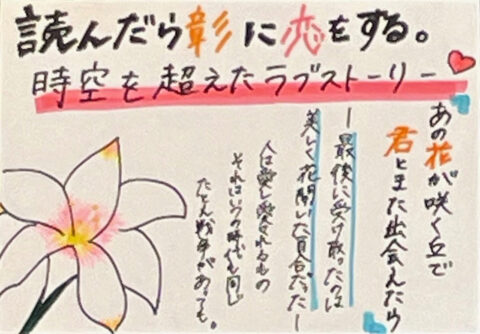 読んだら彰に恋をする。
時空を超えたラブストーリー
あの花が咲く丘で
君とまた出会えたら
ー最後に受け取ったのは
美しく花開いた百合だったー
人は愛し愛されるもの
それはいつの時代も同じ
たとえ戦争があっても。